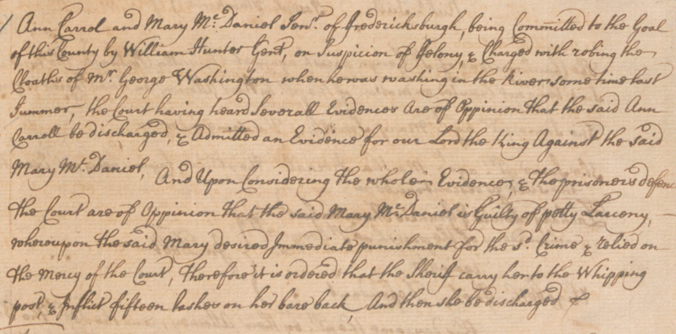 Ann Carrol and Mary Mc.Daniel Senr. of Fredericksburgh, being Committed to the Goal
of this County by William Hunter Gent, on Suspicion of Felony, & Charged with robing the
Cloaths of Mr. George Washington when he was washing in the River some time last
Summer, the Court having heard Severall Evidences Are of Oppinion that the said Ann
Carroll be discharged, & Admitted an Evidence for our Lord the King Against the said
Mary Mc.Daniel, And Upon Considering the whole Evidences, & the prisoners defence
the Court are of Oppinion that the said Mary Mc.Daniel is Guilty of petty Larceny,
whereupon the said Mary desired Immediate punishment for the sd. Crime & relied on
the Mercy of the Court, Therefore it is ordered that the Sheriff carry her to the Whipping
post, & Inflict fifteen lashes on her bare back And then she be discharged &